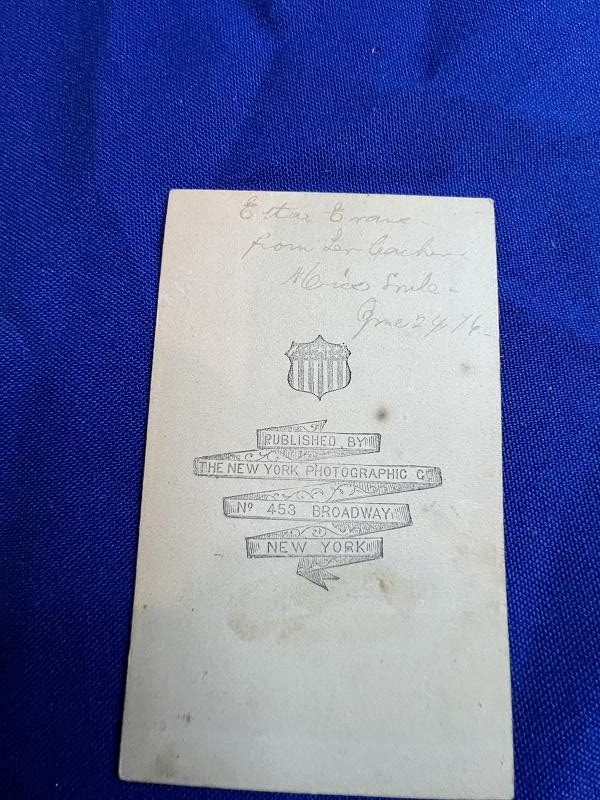 Etta Evans
from her teacher
Miss Smile
June 24 / 76
PUBLISHED BY
THE NEW YORK PHOTOGRAPHIC Co
No 453 BROADWAY
NEW YORK